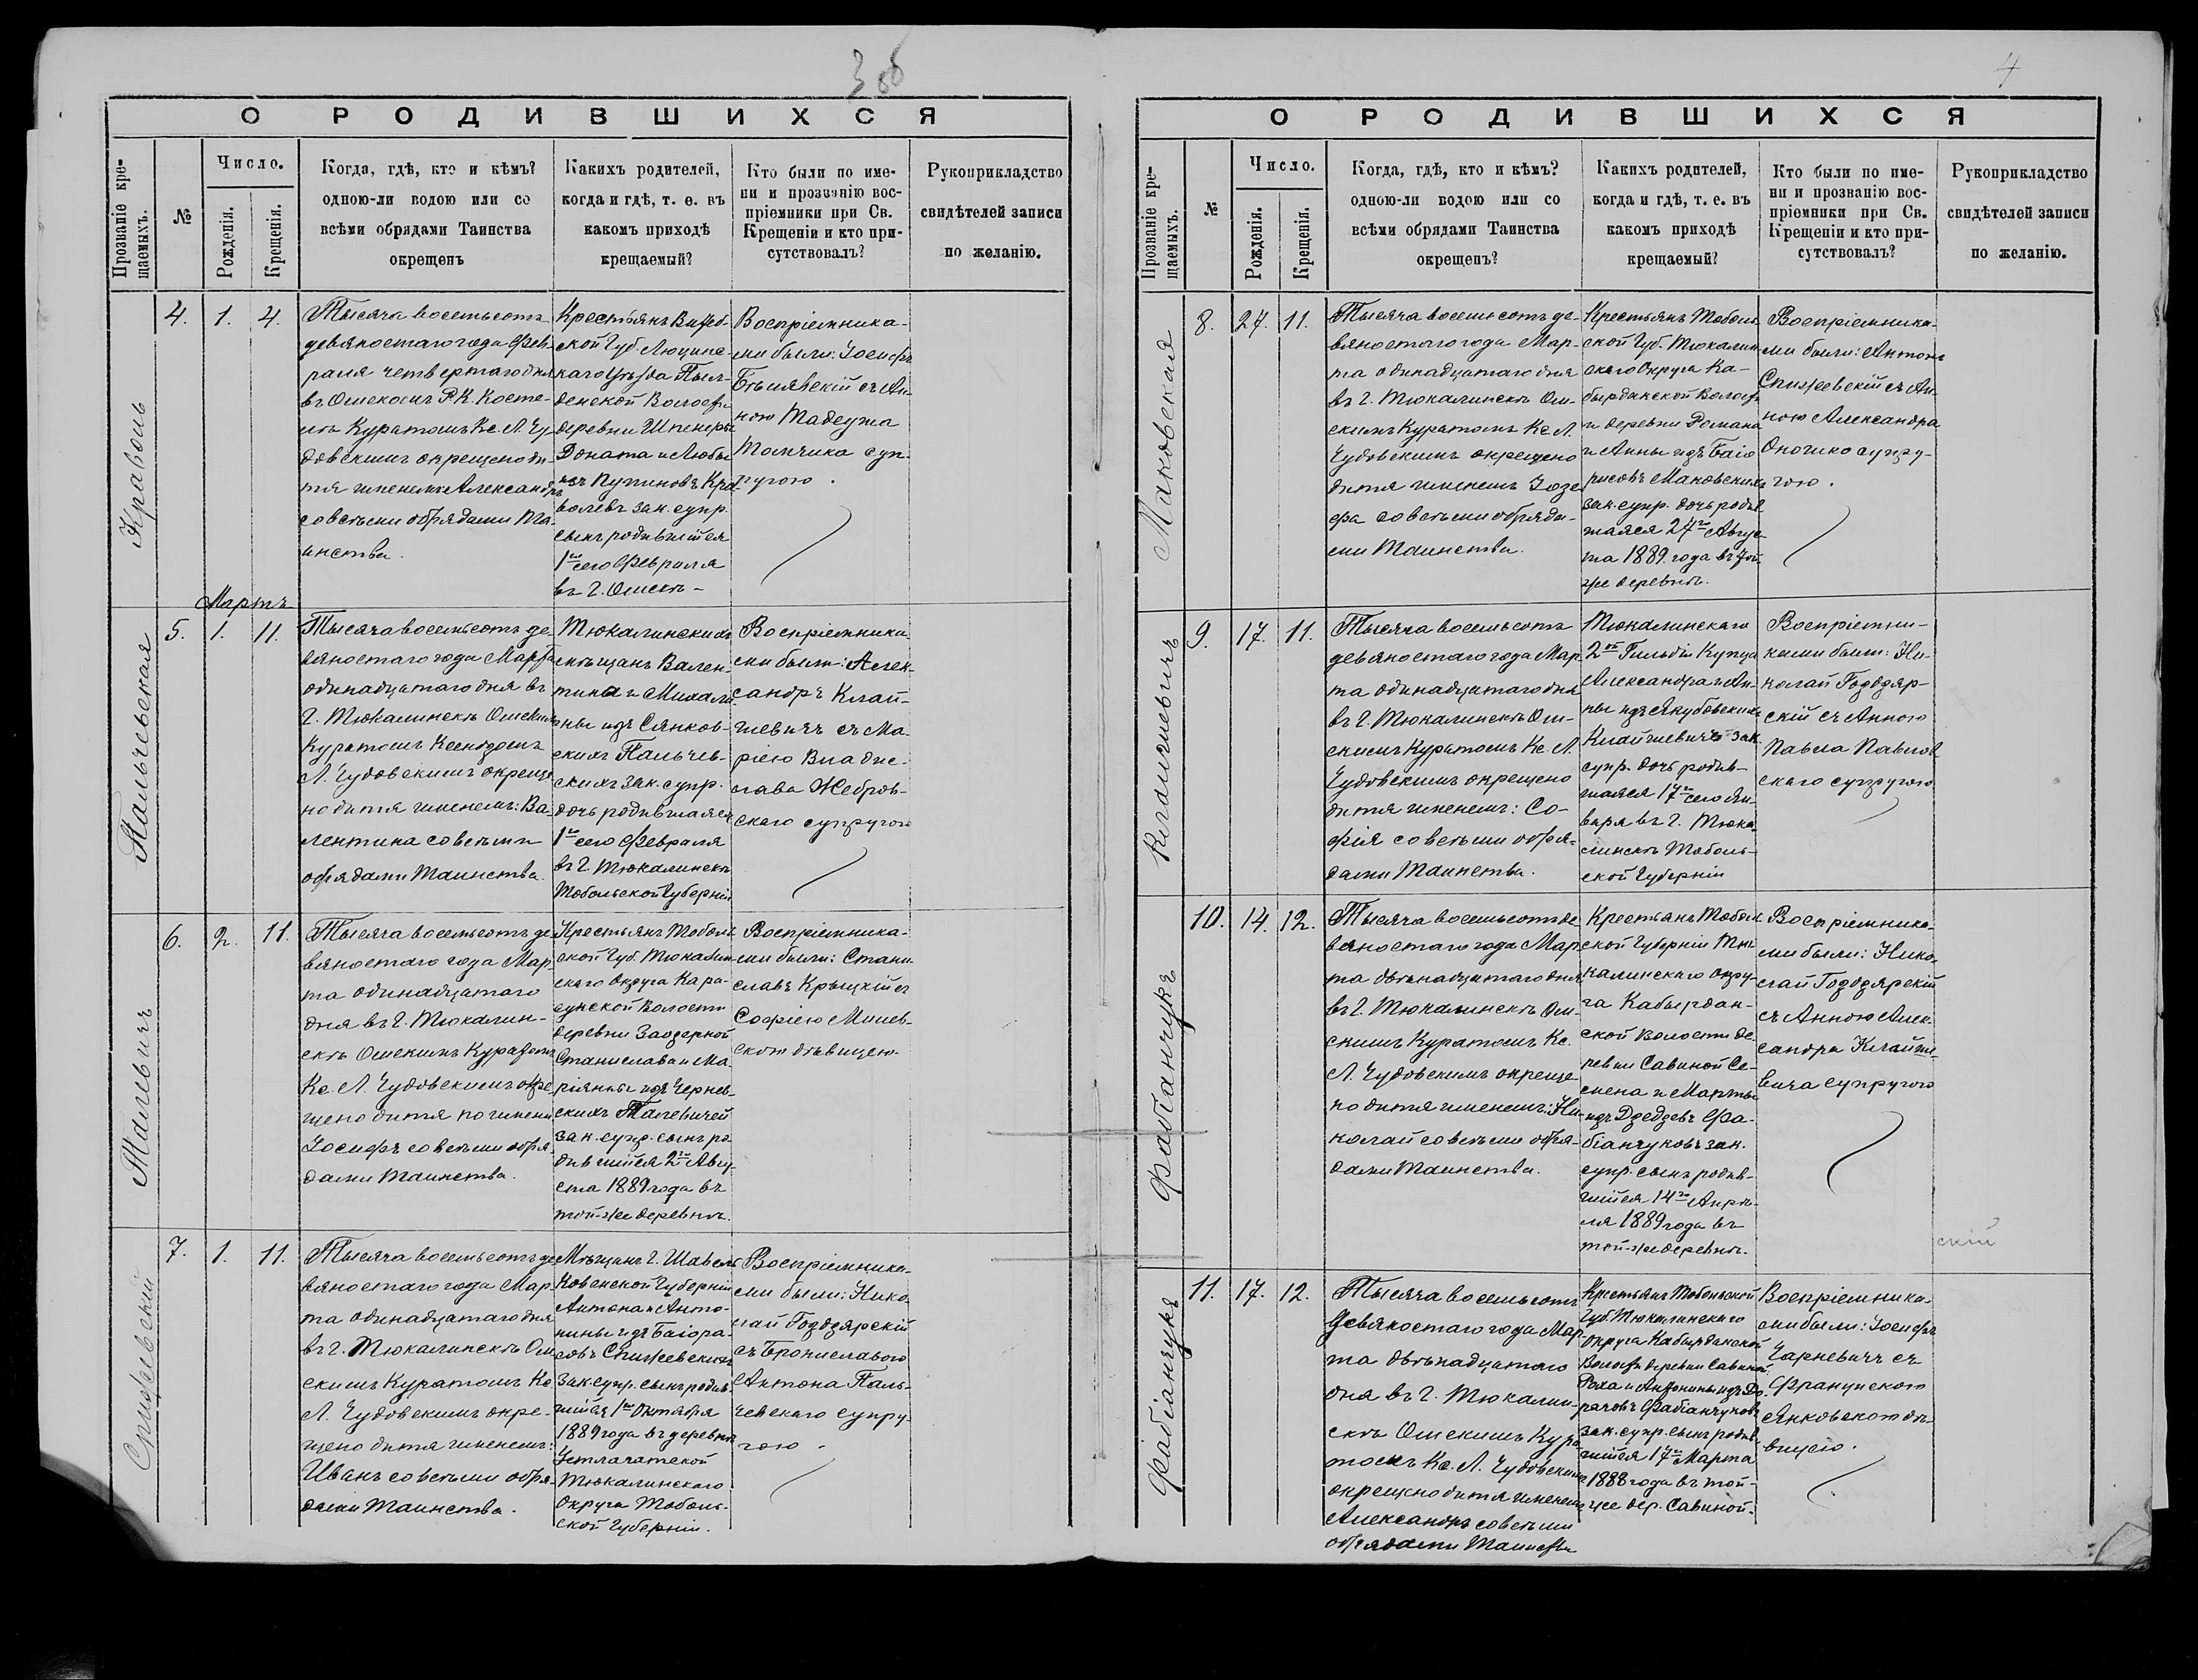 3 об
О РОДИВШИХСЯ
Прозваніе кре-
щаемыхъ.
№
Число.
Рожденія.
Крещенія.
Когда, гдѣ, кто и кѣмъ?
одною-ли водою или со
всѣми обрядами Таинства
окрещенъ
Какихъ родителей,
когда и гдѣ, т. е. въ
какомъ приходѣ
крещаемый?
Кто были по име-
ни и прозванію вос-
пріемники при Св.
Крещеніи и кто при-
сутствовалъ?
Рукоприкладство
свидѣтелей записи
по желанію.
Кравволь
4.
1.
4.
Тысяча восемьсотъ
девяностаго года Фев-
раля четвертаго дня
въ Омскомъ Р. К. Косте-
лѣ Куратомъ Кс. Л. Чу-
довскимъ окрещено ди-
тя именемъ Александръ
со всѣми обрядами Та-
инства.
Крестьянъ Витеб-
ской Губ. Люцинс-
каго Уѣзда Пыл-
денской Волости
деревни Шпенеры
Доната и Любы
изъ Пупиновъ Кра-
волевъ зак. супр.
сынъ родившійся
1го сего Февраля
въ г. Омскѣ -
Воспріемника-
ми были: Іосифъ
Бѣлявскій съ Ан-
ною Тадеуша
Томчика суп-
ругою.
Мартъ
Пальчевская
5.
1.
11.
Тысяча восемьсотъ де-
вяностаго года Марта
одинадцатаго дня въ
г. Тюкалинскѣ Омскимъ
Куратомъ Ксендзомъ
Л. Чудовскимъ окреще-
но дитя именемъ: Ва-
лентина со всѣми
обрядами Таинства.
Тюкалинскихъ
мѣщанъ Вален-
тина и Михали-
ны изъ Сянков-
скихъ Пальчев-
скихъ зак. супр.
дочь родившаяся
1го сего Февраля
въ г. Тюкалинскѣ
Тобольской Губерніи
Воспріемника
ми были: Алек-
сандръ Клай-
шевичъ съ Ма-
ріею Владис-
лава Жебров-
скаго супругою
Талевичъ
6.
2.
11.
Тысяча восемьсотъ де-
вяностаго года Мар-
та одинадцатаго
дня въ г. Тюкалин-
скѣ Омскимъ Куратомъ
Кс. Л. Чудовскимъ окре-
щено дитя по имени
Іосифъ со всѣми обря-
дами Таинства.
Крестьянъ Тоболь-
ской Губ. Тюкалин-
скаго Округа Кара-
сукской Волости
деревни Заозерной
Станислава и Ма-
ріянны изъ Чернев-
скихъ Талевичей
зак. супр. сынъ ро-
дившійся 2го Авгу-
ста 1889 года въ
той-же деревнѣ.
Воспріемника-
ми были: Стани-
славъ Крыцкій съ
Софіею Милев-
скою дѣвицею.
Спижевскій
7.
1.
11.
Тысяча восемьсотъ де-
вяностаго года Мар-
та одинадцатаго дня
въ г. Тюкалинскѣ Ом-
скимъ Куратомъ Кс
Л. Чудовскимъ окре-
щено дитя именемъ:
Иванъ со всѣми обря-
дами Таинства.
Мѣщанъ г. Шавель
Ковенской Губерніи
Антона и Анто-
нины изъ Баіора-
совъ Спижевскихъ
зак. супр. сынъ родив-
шійся 1го Октября
1889 года въ деревнѣ
Тюкалинскаго
Округа Тоболь-
ской Губерніи.
Воспріемника-
ми были: Нико-
лай Гозддярскій
съ Брониславою
Антона Паль-
чевскаго супру-
гою.
4
О РОДИВШИХСЯ
Прозваніе кре-
щаемыхъ.
№
Число.
Рожденія.
Крещенія.
Когда, гдѣ, кто и кѣмъ?
одною-ли водою или со
всѣми обрядами Таинства
окрещенъ?
Какихъ родителей,
когда и гдѣ, т. е. въ
какомъ приходѣ
крещаемый?
Кто были по име-
ни и прозванію вос-
пріемники при Св.
Крещеніи и кто при-
сутствовалъ?
Рукоприкладство
свидѣтелей записи
по желанію.
Маковская
8.
27.
11.
Тысяча восемьсотъ де-
вяностаго года Мар-
та одинадцатаго дня
въ г. Тюкалинскѣ Ом-
скимъ Куратомъ Кс. Л.
Чудовскимъ окрещено
дитя именемъ Іозе-
фа со всѣми обряда-
ми Таинства.
Крестьянъ Тоболь-
ской Губ. Тюкалин-
скаго Округа Ка-
бырданской Волост-
и деревни Романа
и Анны изъ Баіо-
рисовъ Маковскихъ
зак. супр. дочь родив-
шаяся 27го Авгус-
та 1889 года въ той-
же деревнѣ.
Воспріемника-
ми были: Антонъ
Спижевскій съ Ан-
ною Александра
Оночико супру-
гою.
Клайшевичъ
9.
17.
11.
Тысяча восемьсотъ
девяностаго года Мар-
та одинадцатаго дня
въ г. Тюкалинскѣ Ом-
скимъ Куратомъ Кс. Л.
Чудовскимъ окрещено
дитя именемъ: Со-
фія со всѣми обря-
дами Таинства.
Тюкалинскаго
2ой Гильдіи Купца
Александра и Ан-
ны изъ Якубовскихъ
Клайшевичъ зак.
супр. дочь родив-
шаяся 17го сего Ян-
варя въ г. Тюка-
линскѣ Тоболь-
ской Губерніи
Воспріемни-
ками были: Ни-
колай Гозддяр-
скій съ Анною
Павла Павлов-
скаго супругою
Фабіанчукъ
10.
14.
12.
Тысяча восемьсотъ де-
вяностаго года Мар-
та двѣнадцатаго дня
въ г. Тюкалинскѣ Ом-
скимъ Куратомъ Кс.
Л. Чудовскимъ окреще-
но дитя именемъ: Ни-
колай со всѣми обря-
дами Таинства.
Крестьянъ Тоболь-
ской Губерніи Тю-
калинскаго Окру-
га Кабырдан-
ской Волости де-
ревни Савиной Се-
мена и Марты
изъ Дзедзевъ Фа-
біанчуковъ зак.
супр. сынъ родив-
шійся 14го Апрѣ-
ля 1889 года въ
той-же деревнѣ.
Воспріемника-
ми были: Нико-
лай Гозддярскій
съ Анною Алек-
сандра Клайше-
вича супругою
скій
Фабіанчукъ
11.
17.
12.
Тысяча восемьсотъ
Девяностаго года Мар-
та двѣнадцатаго
дня въ г. Тюкалин-
скѣ Омскимъ Кура-
томъ Кс. Л. Чудовскимъ
окрещено дитя именемъ
Александръ со всѣми
обрядами Таинства
Крестьянъ Тобольской
Губ. Тюкалинскаго
Округа Кабырданской
Волости деревни Савиной
Роха и Антонины изъ До-
рачовъ Фабіанчуковъ
зак. супр. сынъ родив-
шійся 17го Марта
1888 года въ той-
же дер. Савиной.
Воспріемника-
ми были: Іосифъ
Чарневичъ съ
Францискою
Янковскою дѣ-
вицею.